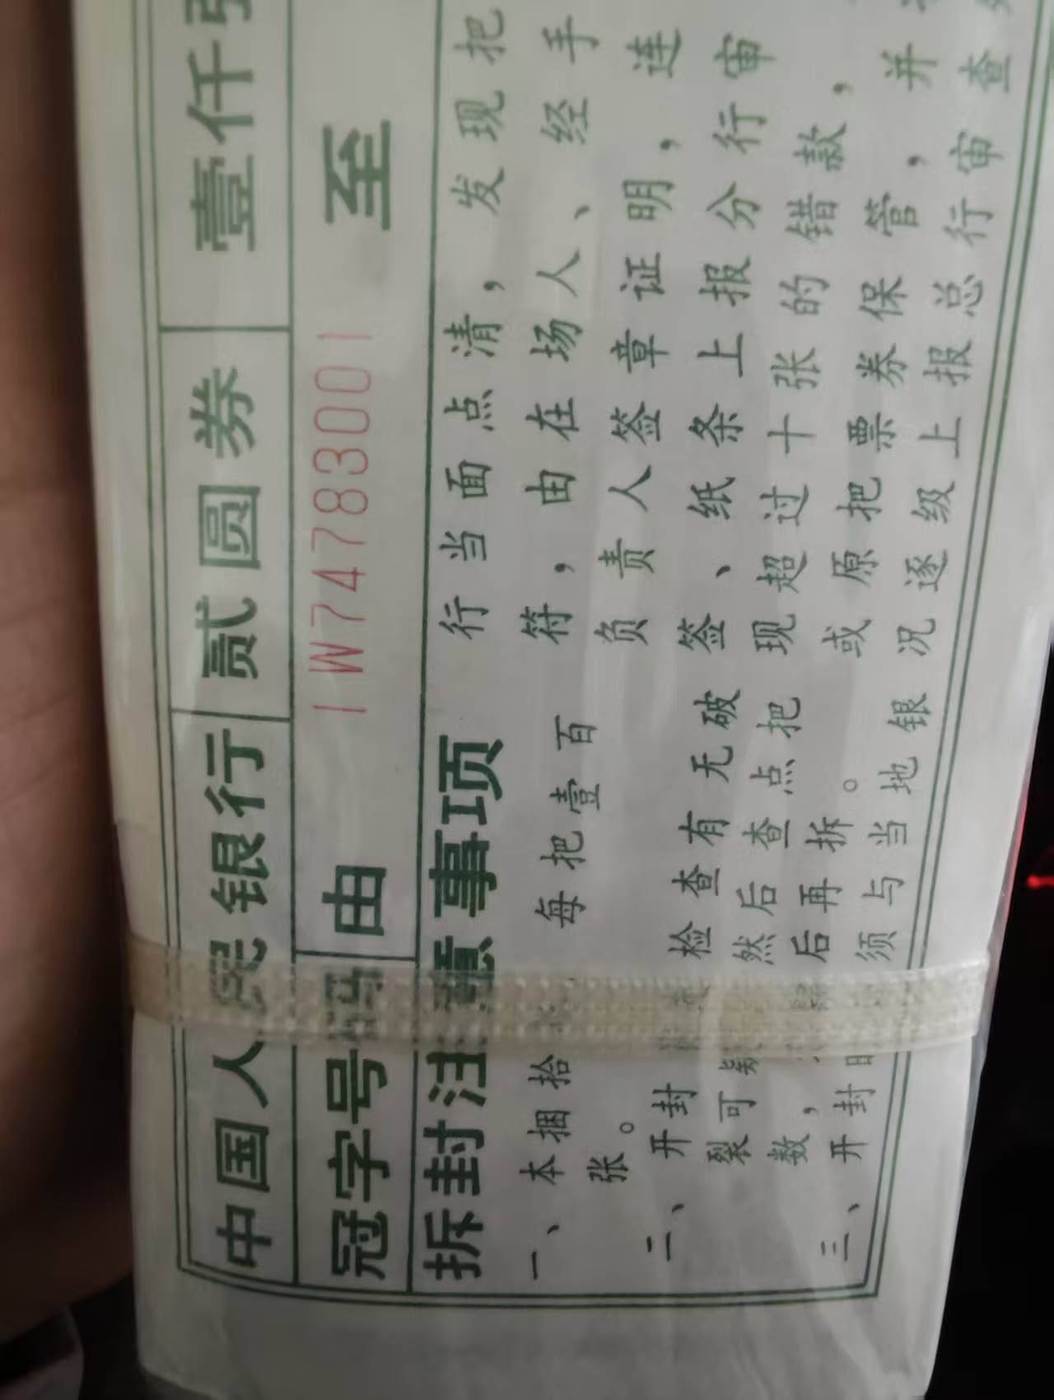 中国人民银行 贰圆券 壹仟张
冠字号码 由 IW74783001 至
拆封注意事项
一、本捆拾 每把壹百
张。
二、开封 检查有无破
裂可疑 然后查点把
数， 后再拆。
三、开封 须与当地银
行当面点清，发现把
符，由在场人、经手
负责人签章证明，连
签、纸条上报分行审
现超过十张的错款，
或原把票券保管，并
况逐级上报总行审查